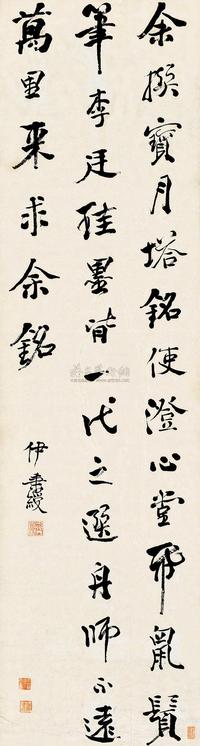 余撰寶月塔銘使澄心堂帋鼠鬚
筆李廷珪墨皆一代之選舟師不遠
萬里来求余銘
伊秉綬